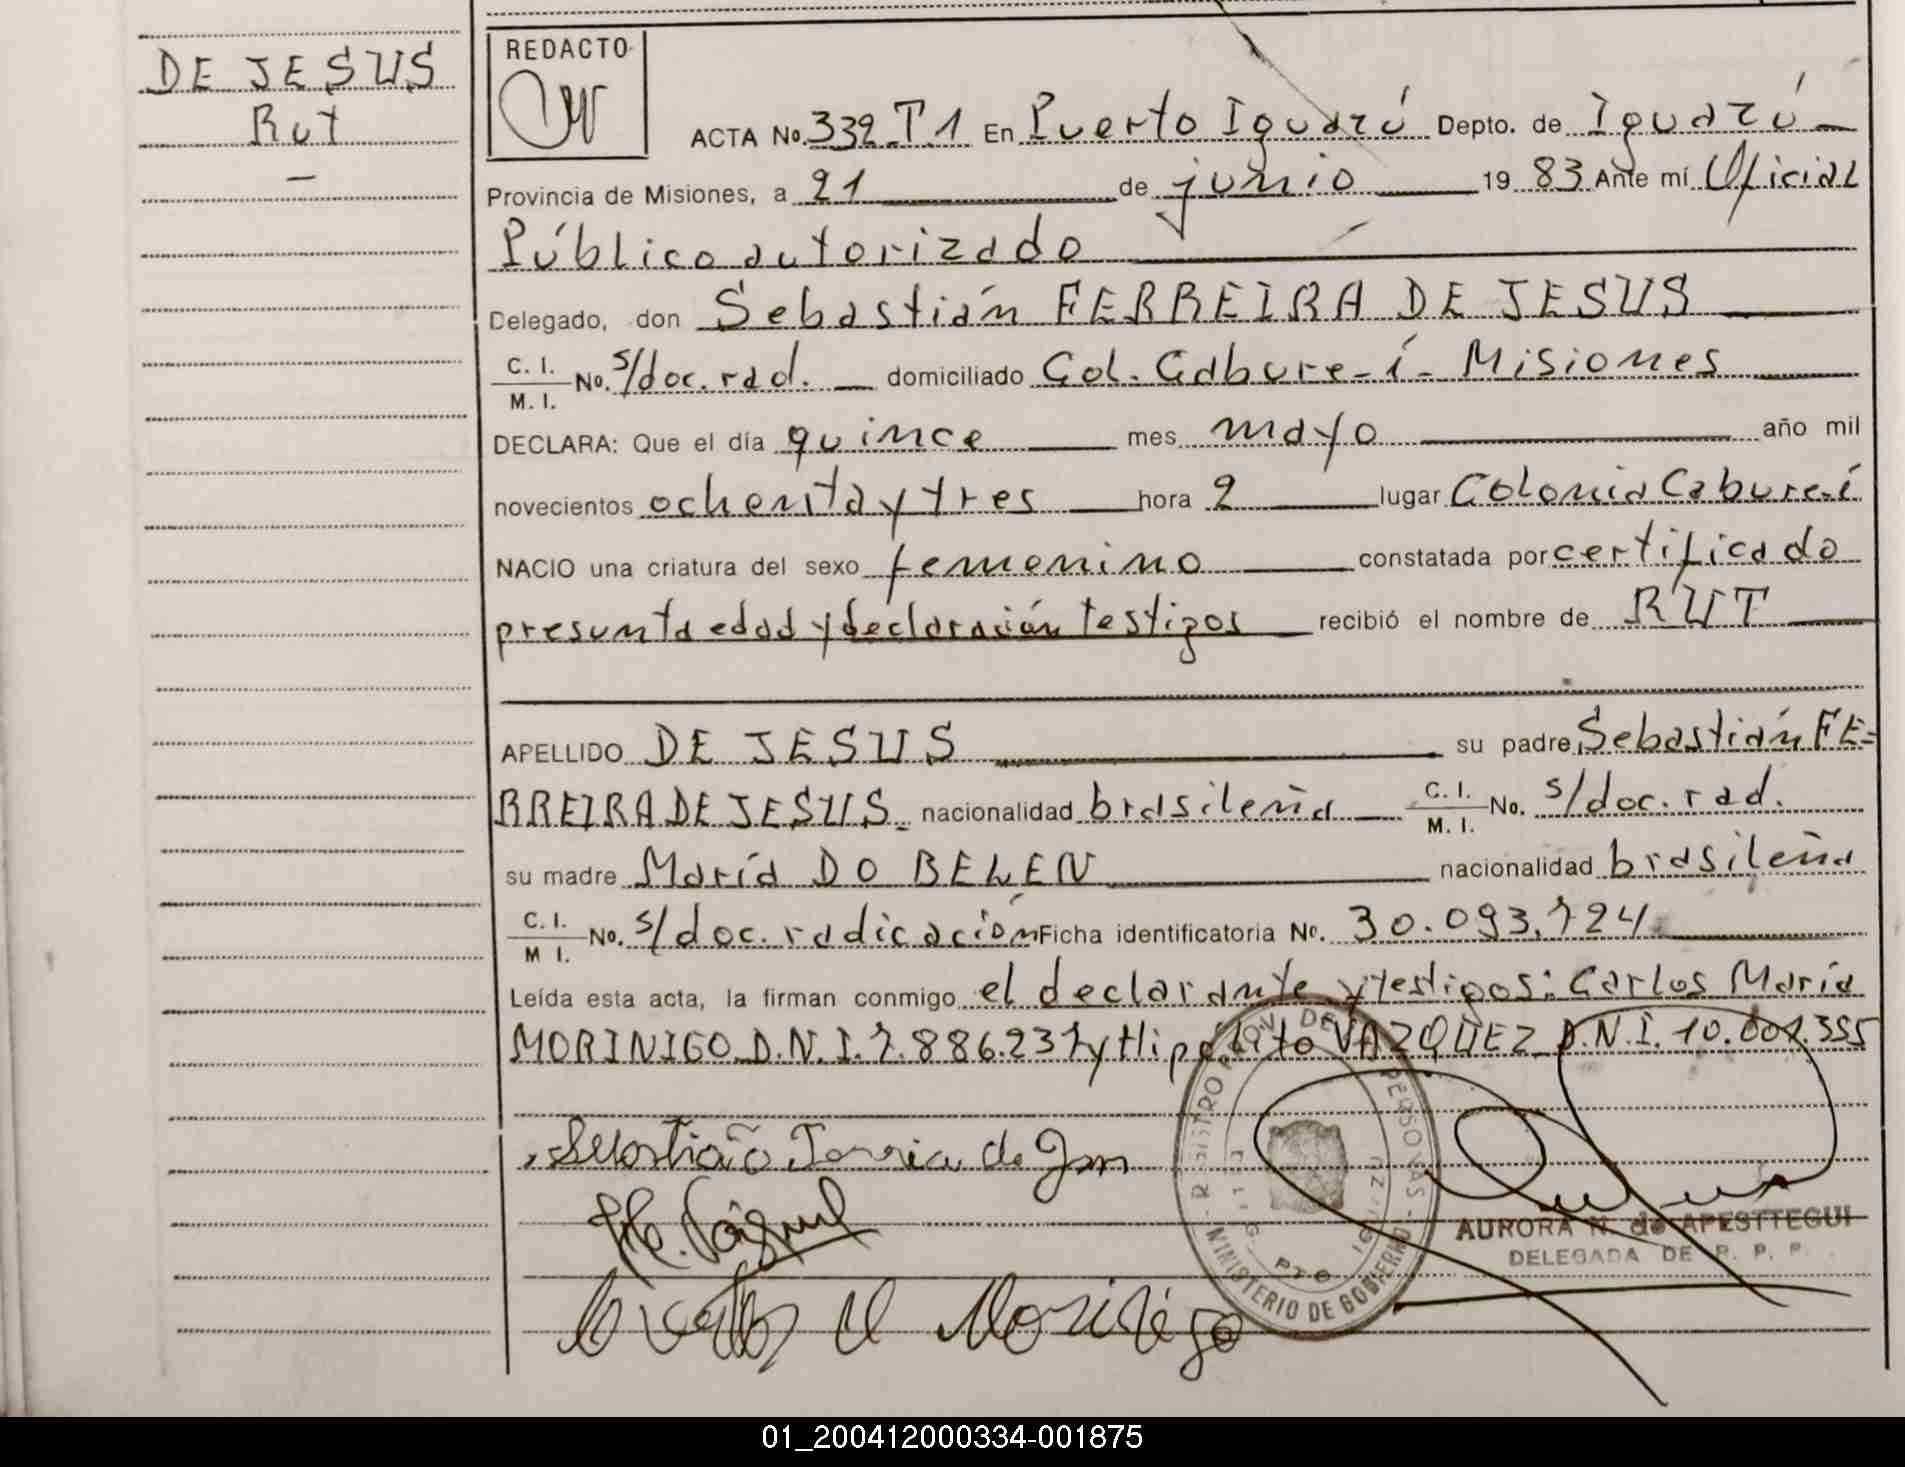 DE JESUS
Rut
—
REDACTO
ACTA No. 332 T1 En Puerto Iguazú Depto. de Iguazú
Provincia de Misiones, a 21 de junio 19 83 Ante mí Oficial
Público autorizado
Delegado, don Sebastián FERREIRA DE JESUS
C. I. / M. I. No. s/doc. rad. domiciliado Col. Cabure-í - Misiones
DECLARA: Que el día quince mes mayo año mil
novecientos ochenta y tres hora 2 lugar Colonia Cabure-í
NACIO una criatura del sexo femenino constatada por certificado
presunta edad y declaración testigos recibió el nombre de RUT
APELLIDO DE JESUS su padre Sebastián FE=
RREIRA DE JESUS. nacionalidad brasileña C. I. / M. I. No. s/doc. rad.
su madre María DO BELEN nacionalidad brasileña
C. I. / M I. No. s/doc. radicación Ficha identificatoria No. 30.093.724
Leída esta acta, la firman conmigo el declarante y testigos: Carlos María
MORINIGO D.N.I. 7.886.237 y Hipólito VAZQUEZ D.N.I. 10.001.355
MINISTERIO DE GOBIERNO
AURORA N. de APESTTEGUI
DELEGADA DE R. P. P.
01_200412000334-001875